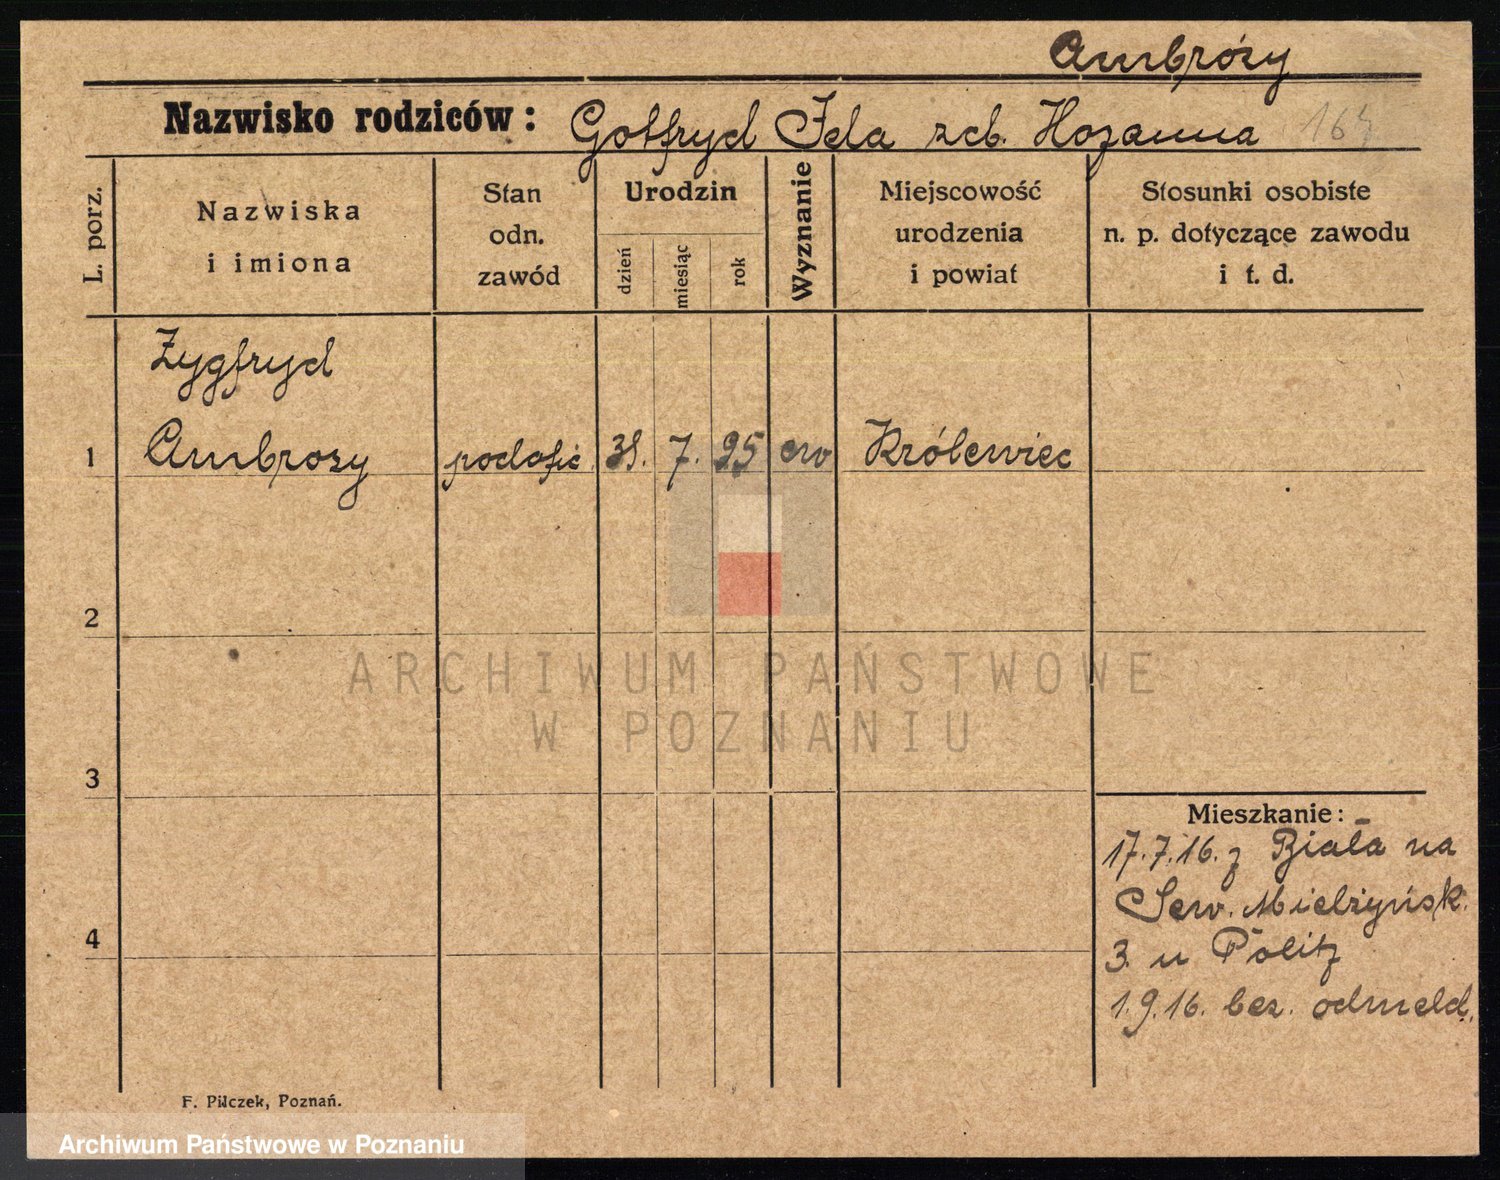 Ambroży
Nazwisko rodziców: Gotfryd Jela zcb. Hozanna 164
L. porz.
Nazwiska
i imiona
Stan
odn.
zawód
Urodzin
dzień
miesiąc
rok
Wyznanie
Miejscowość
urodzenia
i powiat
Stosunki osobiste
n. p. dotyczące zawodu
i t. d.
Zygfryd
1 Ambrozy podofic. 7. 95 ew Królewiec
2
ARCHIWUM PAŃSTWOWE
W POZNANIU
3
Mieszkanie:
17.7.16. z Biała na
Sew. Mielżyńsk.
3. u Politz
4
1.9.16. bez. odmeld.
F. Pilczek, Poznań.
Archiwum Państwowe w Poznaniu